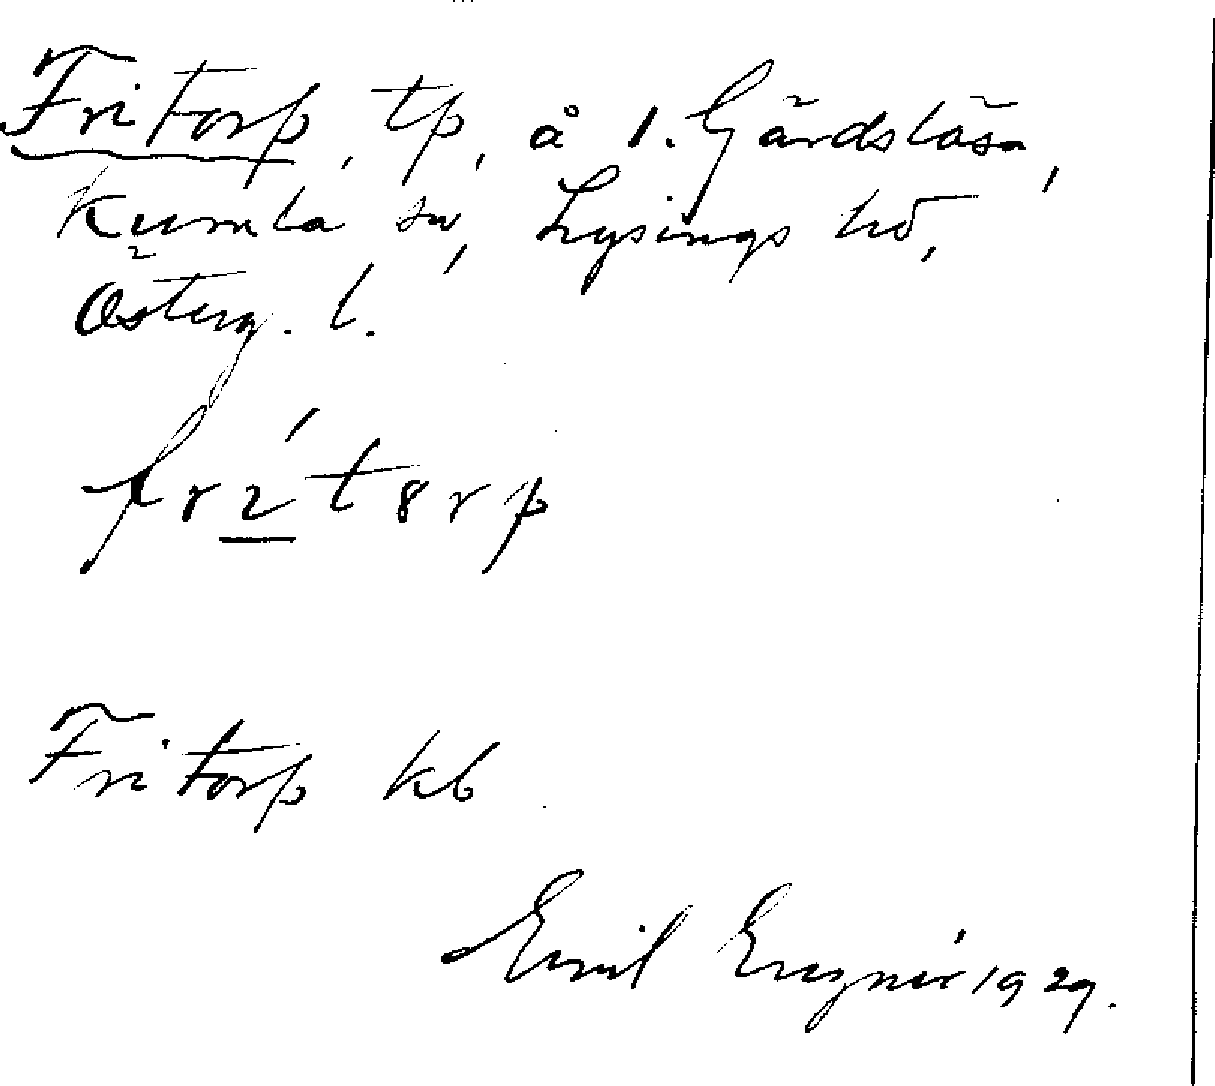 Fritorp, tp, å 1. Gärdslösa,
Kumla sn, Lysings hd,
Österg. l.
frítɞrp
Fritorp kb
Emil 1929.